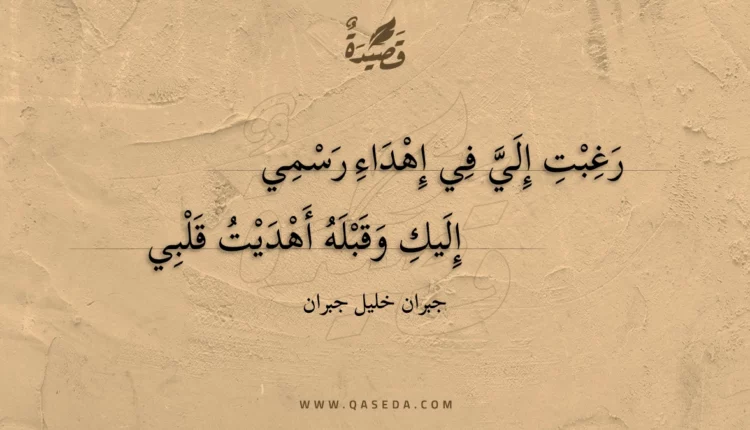 قَصِيدَةٌ
رَغِبْتِ إِلَيَّ فِي إِهْدَاءِ رَسْمِي
إِلَيكِ وَقَبْلَهُ أَهْدَيْتُ قَلْبِي
جبران خليل جبران
WWW.QASEDA.COM